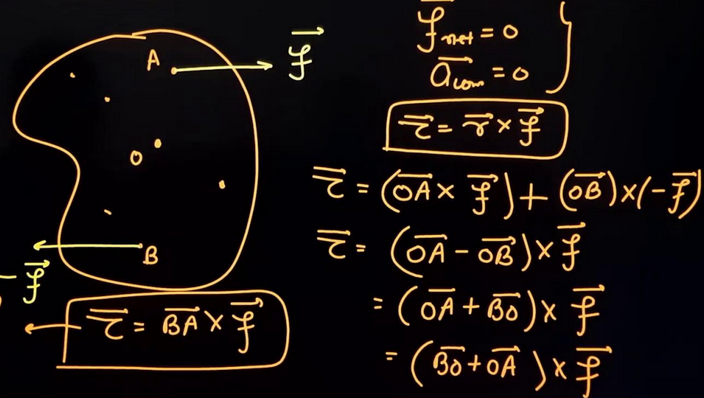 A
f⃗
O
B
-f⃗
τ⃗ = B͞A × f⃗
f⃗net = 0
a⃗com = 0
τ⃗ = r⃗ × f⃗
τ⃗ = (O͞A × f⃗) + (O͞B) × (-f⃗)
τ⃗ = (O͞A - O͞B) × f⃗
= (O͞A + B͞O) × f⃗
= (B͞O + O͞A) × f⃗